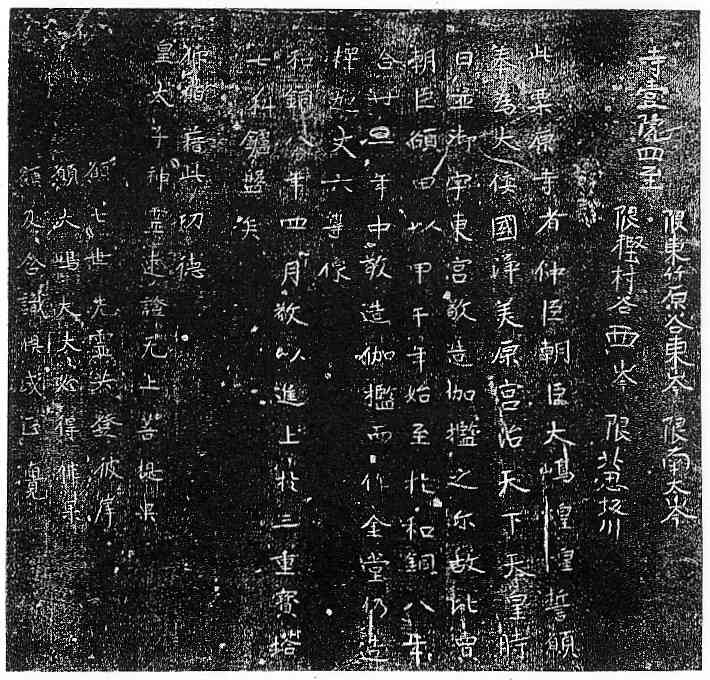 寺壹院四至
限東竹原谷東岑 限南大岑
限樫村谷西岑 限北忍坂川
此粟原寺者仲臣朝臣大嶋惶惶誓願
奉為大倭國浄美原宮治天下天皇時
日並御宇東宮敬造伽檻之尓故比賣
朝臣額田以甲午年始至於和銅八年
合廿二年中敬造伽檻而作金堂仍造
釋迦丈六尊像
和銅八年四月敬以進上於三重寶塔
七科鑪盤矣
仰願藉此功德
皇太子神霊速證无上菩提果
願七世先霊共登彼岸
願大嶋大夫必得佛果
願及含識俱成正覺